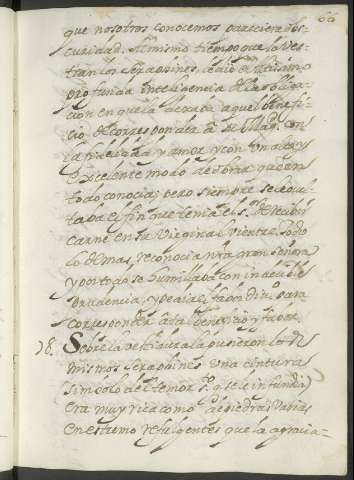 66
que nosotros conocemos pareciera obs-
curidad. Al mismo tiempo que la ves-
tian los Seraphines, le dio el Altissimo
profunda inteligencia de la obliga-
cion en que la dexaba aquel benefi-
cio de corresponder a su Mag. con
la fidelidad y amor, y con un alto y
excelente modo de obrar que en
todo conocia; pero siempre se le ocul-
taba el fin que tenia el S.r de recibir
carne en su Virginal vientre. Todo
lo demas reconocia nra gran Señora
y por todo se humillaba con indecible
prudencia, y pedia el favor divino para
corresponder a tal beneficio y favor.
78. Sobre la vestidura la pusieron los
mismos Seraphines una cintura
simbolo del temor s.to que se le infundia,
era muy rica como de piedras varias
en estremo refulgentes que la agracia-